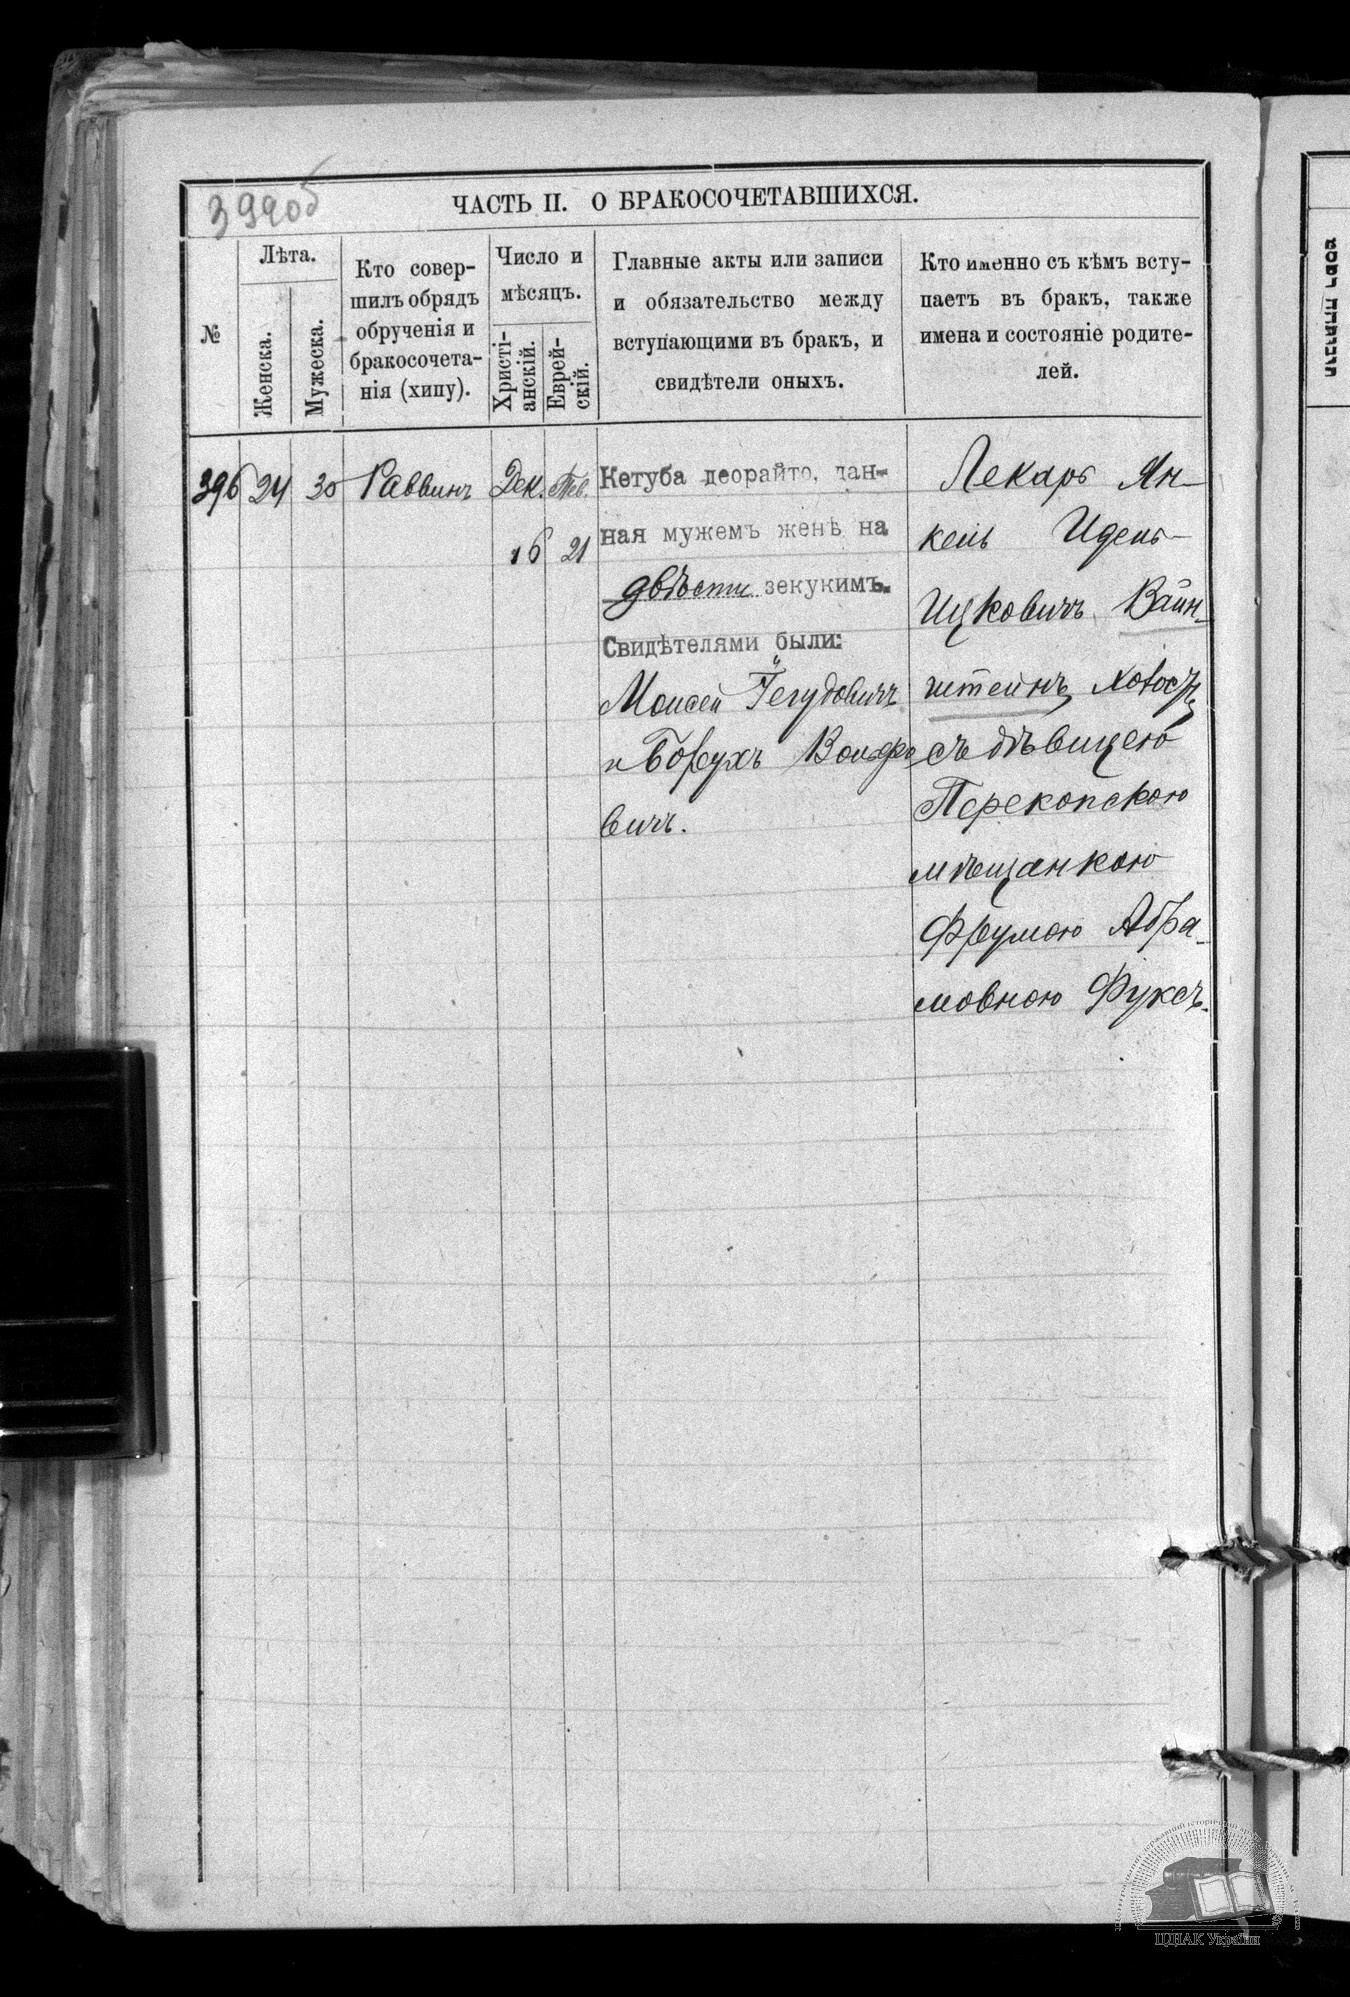 399об
ЧАСТЬ II. О БРАКОСОЧЕТАВШИХСЯ.
№
Лѣта.
Женска.
Мужеска.
Кто совер-
шилъ обрядъ
обрученія и
бракосочета-
нія (хипу).
Число и
мѣсяцъ.
Христі-
анскій.
Еврей-
скій.
Главные акты или записи
и обязательство между
вступающими въ бракъ, и
свидѣтели оныхъ.
Кто именно съ кѣмъ всту-
паетъ въ бракъ, также
имена и состояніе родите-
лей.
396 24 30 Раввинъ Дек. Тев.
16 21
Кетуба деорайто, дан-
ная мужемъ женѣ на
двѣсти зекукимъ.
Свидѣтелями были:
Моисей Іегудовичъ
и Борухъ Вольфо
вичъ.
Лекарь Ян-
кель Идель-
Ицковичъ Вайн-
штейнъ, холостъ,
съ дѣвицею
Перекопскою
мѣщанкою
Фрумою Абра-
мовною Фуксъ.
ЦДІАК України